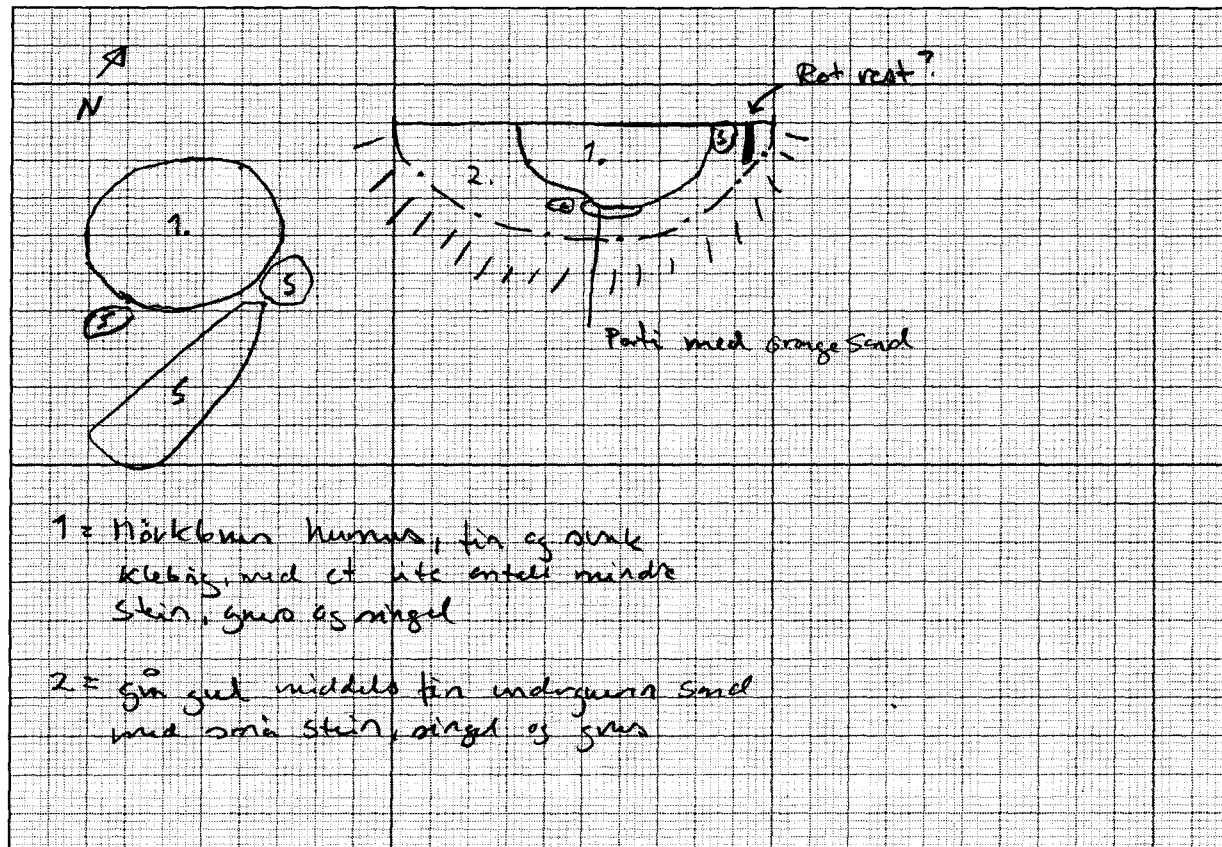 N
Rot rest?
1.
S
1.
2.
S
S
S
Parti med orange sand
1 = Mörkbrun humus, fin og svak
klebrig, med et lite antall mindre
stein, grus og singel
2 = grå gul middels fin sand
med små stein, singel og grus